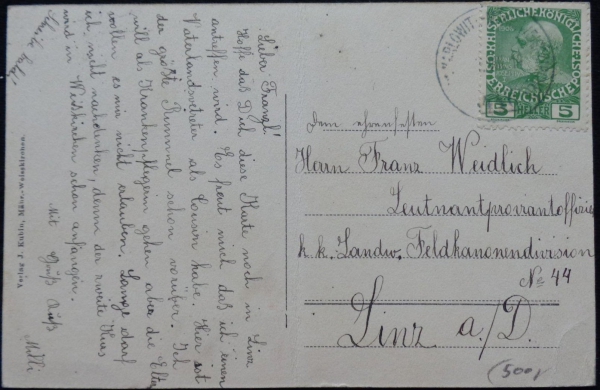 Lieber Franzl!
Hoffe daß Dich diese Karte noch in Linz
antreffen wird. Es freut mich daß ich einen
Vaterlandsvertreter als Cousin habe. Hier ist
der größte Rummel schon vorüber. Ich
will als Krankenpflegerin gehen aber die Elte
wollen es mir nicht erlauben. Lange darf
ich nicht nachdenken, denn der zweite Kurs
wird in Weiskirchen schon anfangen.
Schreibe bald.
Mit Gruß Kuß
Milli
Dem ehrenfesten
Herrn Franz Weidlich
Leutnantproviantoffizier
k. k. Landw. Feldkanonendivision
No 44
Linz a/D.
KAISERLICHE KÖNIGLICHE
ÖSTERREICHISCHE
5 HELLER 5
(500)